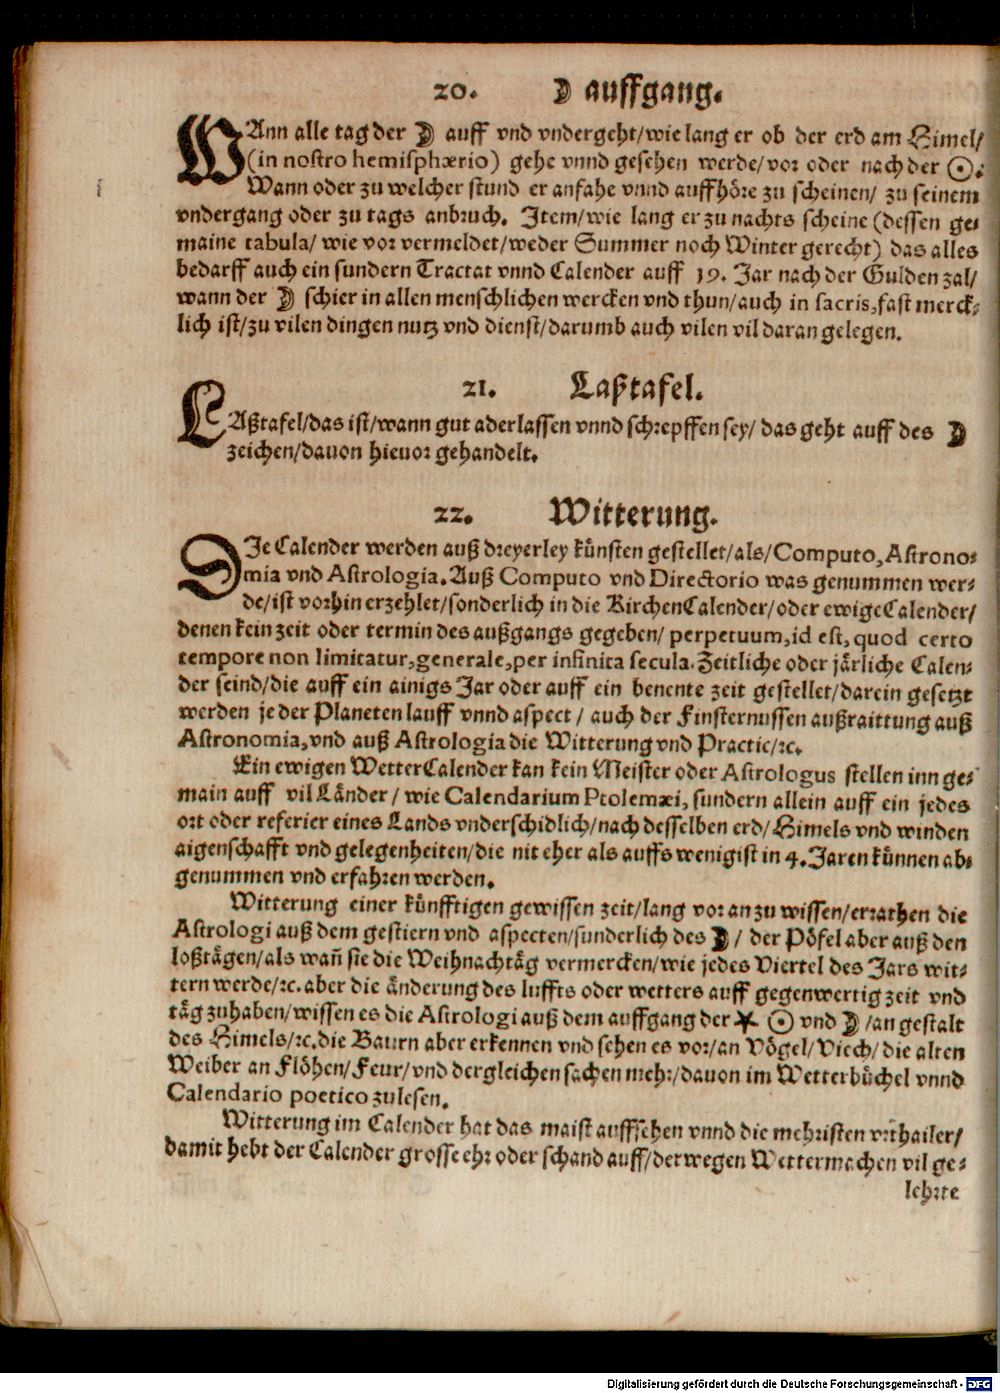 20. ☽ auffgang.
WAnn alle tag der ☽ auff vnd vndergeht/wie lang er ob der erd am Himel/
(in nostro hemisphærio) gehe vnnd gesehen werde/vor oder nach der ☉:
Wann oder zu welcher stund er anfahe vnnd auffhöre zu scheinen/ zu seinem
vndergang oder zu tags anbruch. Item/wie lang er zu nachts scheine (dessen ge-
maine tabula/ wie vor vermeldet/weder Summer noch Winter gerecht) das alles
bedarff auch ein sundern Tractat vnnd Calender auff 19. Jar nach der Gulden zal/
wann der ☽ schier in allen menschlichen wercken vnd thun/auch in sacris, fast merck-
lich ist/zu vilen dingen nutz vnd dienst/darumb auch vilen vil daran gelegen.
21. Laßtafel.
LAßtafel/das ist/wann gut aderlassen vnnd schrepffen sey/ das geht auff des ☽
zeichen/dauon hieuor gehandelt.
22. Witterung.
DIe Calender werden auß dreyerley künsten gestellet/als/Computo, Astrono-
mia vnd Astrologia. Auß Computo vnd Directorio was genummen wer-
de/ist vorhin erzehlet/sonderlich in die KirchenCalender/oder ewige Calender/
denen kein zeit oder termin des außgangs gegeben/ perpetuum, id est, quod certo
tempore non limitatur, generale, per infinita secula. Zeitliche oder järliche Calen-
der seind/die auff ein ainigs Jar oder auff ein benente zeit gestellet/darein gesetzt
werden jeder Planeten lauff vnnd aspect / auch der Finsternussen außraittung auß
Astronomia, vnd auß Astrologia die Witterung vnd Practic/ꝛc.
Ein ewigen WetterCalender kan kein Meister oder Astrologus stellen inn ge-
main auff vil Länder / wie Calendarium Ptolemæi, sundern allein auff ein jedes
ort oder referier eines Lands vnderschidlich/nach desselben erd/Himels vnd winden
aigenschafft vnd gelegenheiten/die nit eher als auffs wenigist in 4. Jaren künnen ab-
genummen vnd erfahren werden.
Witterung einer künfftigen gewissen zeit/lang vor an zu wissen/errathen die
Astrologi auß dem gestiern vnd aspecten/sunderlich des ☽ / der Pöfel aber auß den
loßtägen/als wañ sie die Weihnachtäg vermercken/wie jedes Viertel des Jars wit-
tern werde/ꝛc. aber die änderung des luffts oder wetters auff gegenwertig zeit vnd
täg zuhaben/wissen es die Astrologi auß dem auffgang der ★ ☉ vnd ☽ /an gestalt
des Himels/ꝛc. die Baurn aber erkennen vnd sehen es vor/an Vögel/Viech/ die alten
Weiber an Flöhen/Feur/vnd dergleichen sachen mehr/dauon im Wetterbüchel vnnd
Calendario poetico zulesen.
Witterung im Calender hat das maist auffsehen vnnd die mehristen vrthailer/
damit hebt der Calender grosse ehr oder schand auff/derwegen Wettermachen vil ge-
lehrte
Digitalisierung gefördert durch die Deutsche Forschungsgemeinschaft - DFG